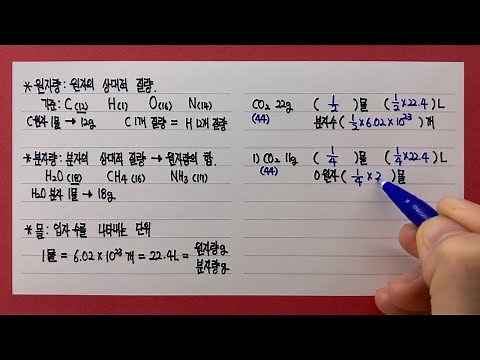 * 원자량: 원자의 상대적 질량.
기준: C(12) H(1) O(16) N(14)
C원자 1몰 → 12g C 1개 질량 = H 12개 질량
* 분자량: 분자의 상대적 질량 → 원자량의 합.
H₂O(18) CH₄(16) NH₃(17)
H₂O 분자 1몰 → 18g
* 몰: 입자 수를 나타내는 단위
1몰 = 6.02×10²³개 = 22.4L = 원자량g/분자량g
CO₂ 22g ( 1/2 )몰 ( 1/2×22.4 )L
(44) 분자수 ( 1/2×6.02×10²³ )개
1) CO₂ 11g ( 1/4 )몰 ( 1/4×22.4 )L
(44) O 원자 ( 1/4×2 )몰